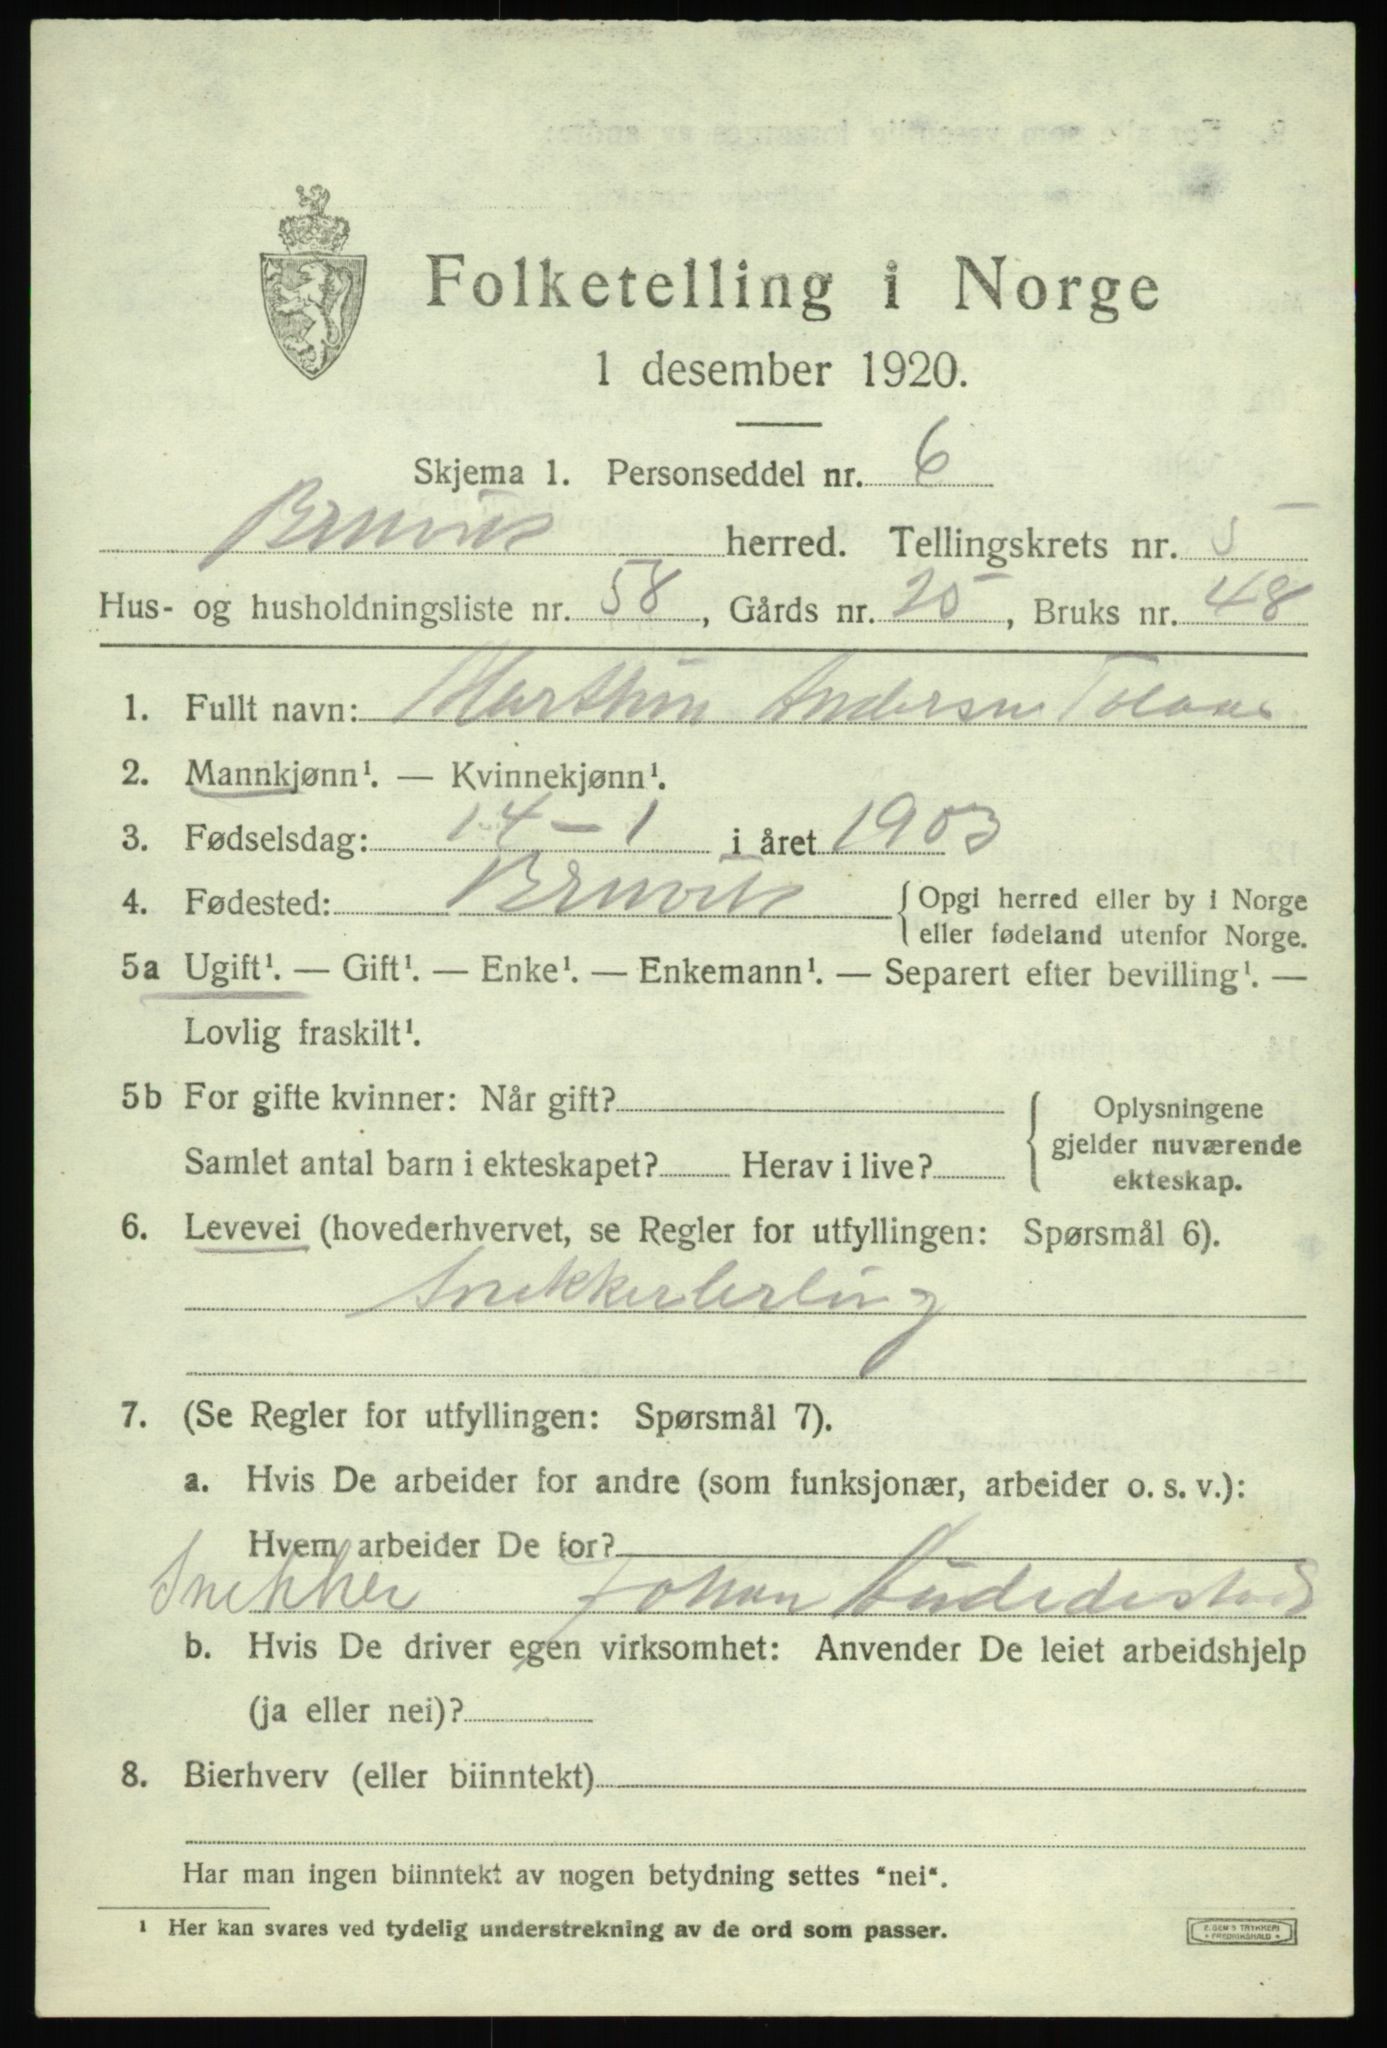 Folketelling i Norge
1 desember 1920.
Skjema 1. Personseddel nr. 6
Bruvik herred. Tellingskrets nr. 5
Hus- og husholdningsliste nr. 58, Gårds nr. 25, Bruks nr. 48
1. Fullt navn: Marthin Andersen
2. Mannkjønn¹. — Kvinnekjønn¹.
3. Fødselsdag: 14 - 1 i året 1903
4. Fødested: Bruvik { Opgi herred eller by i Norge
eller fødeland utenfor Norge.
5a Ugift¹. — Gift¹. — Enke¹. — Enkemann¹. — Separert efter bevilling¹. —
Lovlig fraskilt¹.
5b For gifte kvinner: Når gift? { Oplysningene
gjelder nuværende
Samlet antal barn i ekteskapet? Herav i live?
ekteskap.
6. Levevei (hovederhvervet, se Regler for utfyllingen: Spørsmål 6).
Snekkerlerling
7. (Se Regler for utfyllingen: Spørsmål 7).
a. Hvis De arbeider for andre (som funksjonær, arbeider o. s. v.):
Hvem arbeider De for?
Snekker Johan
b. Hvis De driver egen virksomhet: Anvender De leiet arbeidshjelp
(ja eller nei)?
8. Bierhverv (eller biinntekt)
Har man ingen biinntekt av nogen betydning settes "nei".
¹ Her kan svares ved tydelig understrekning av de ord som passer.
E. SEM'S TRYKKERI
FREDRIKSHALD